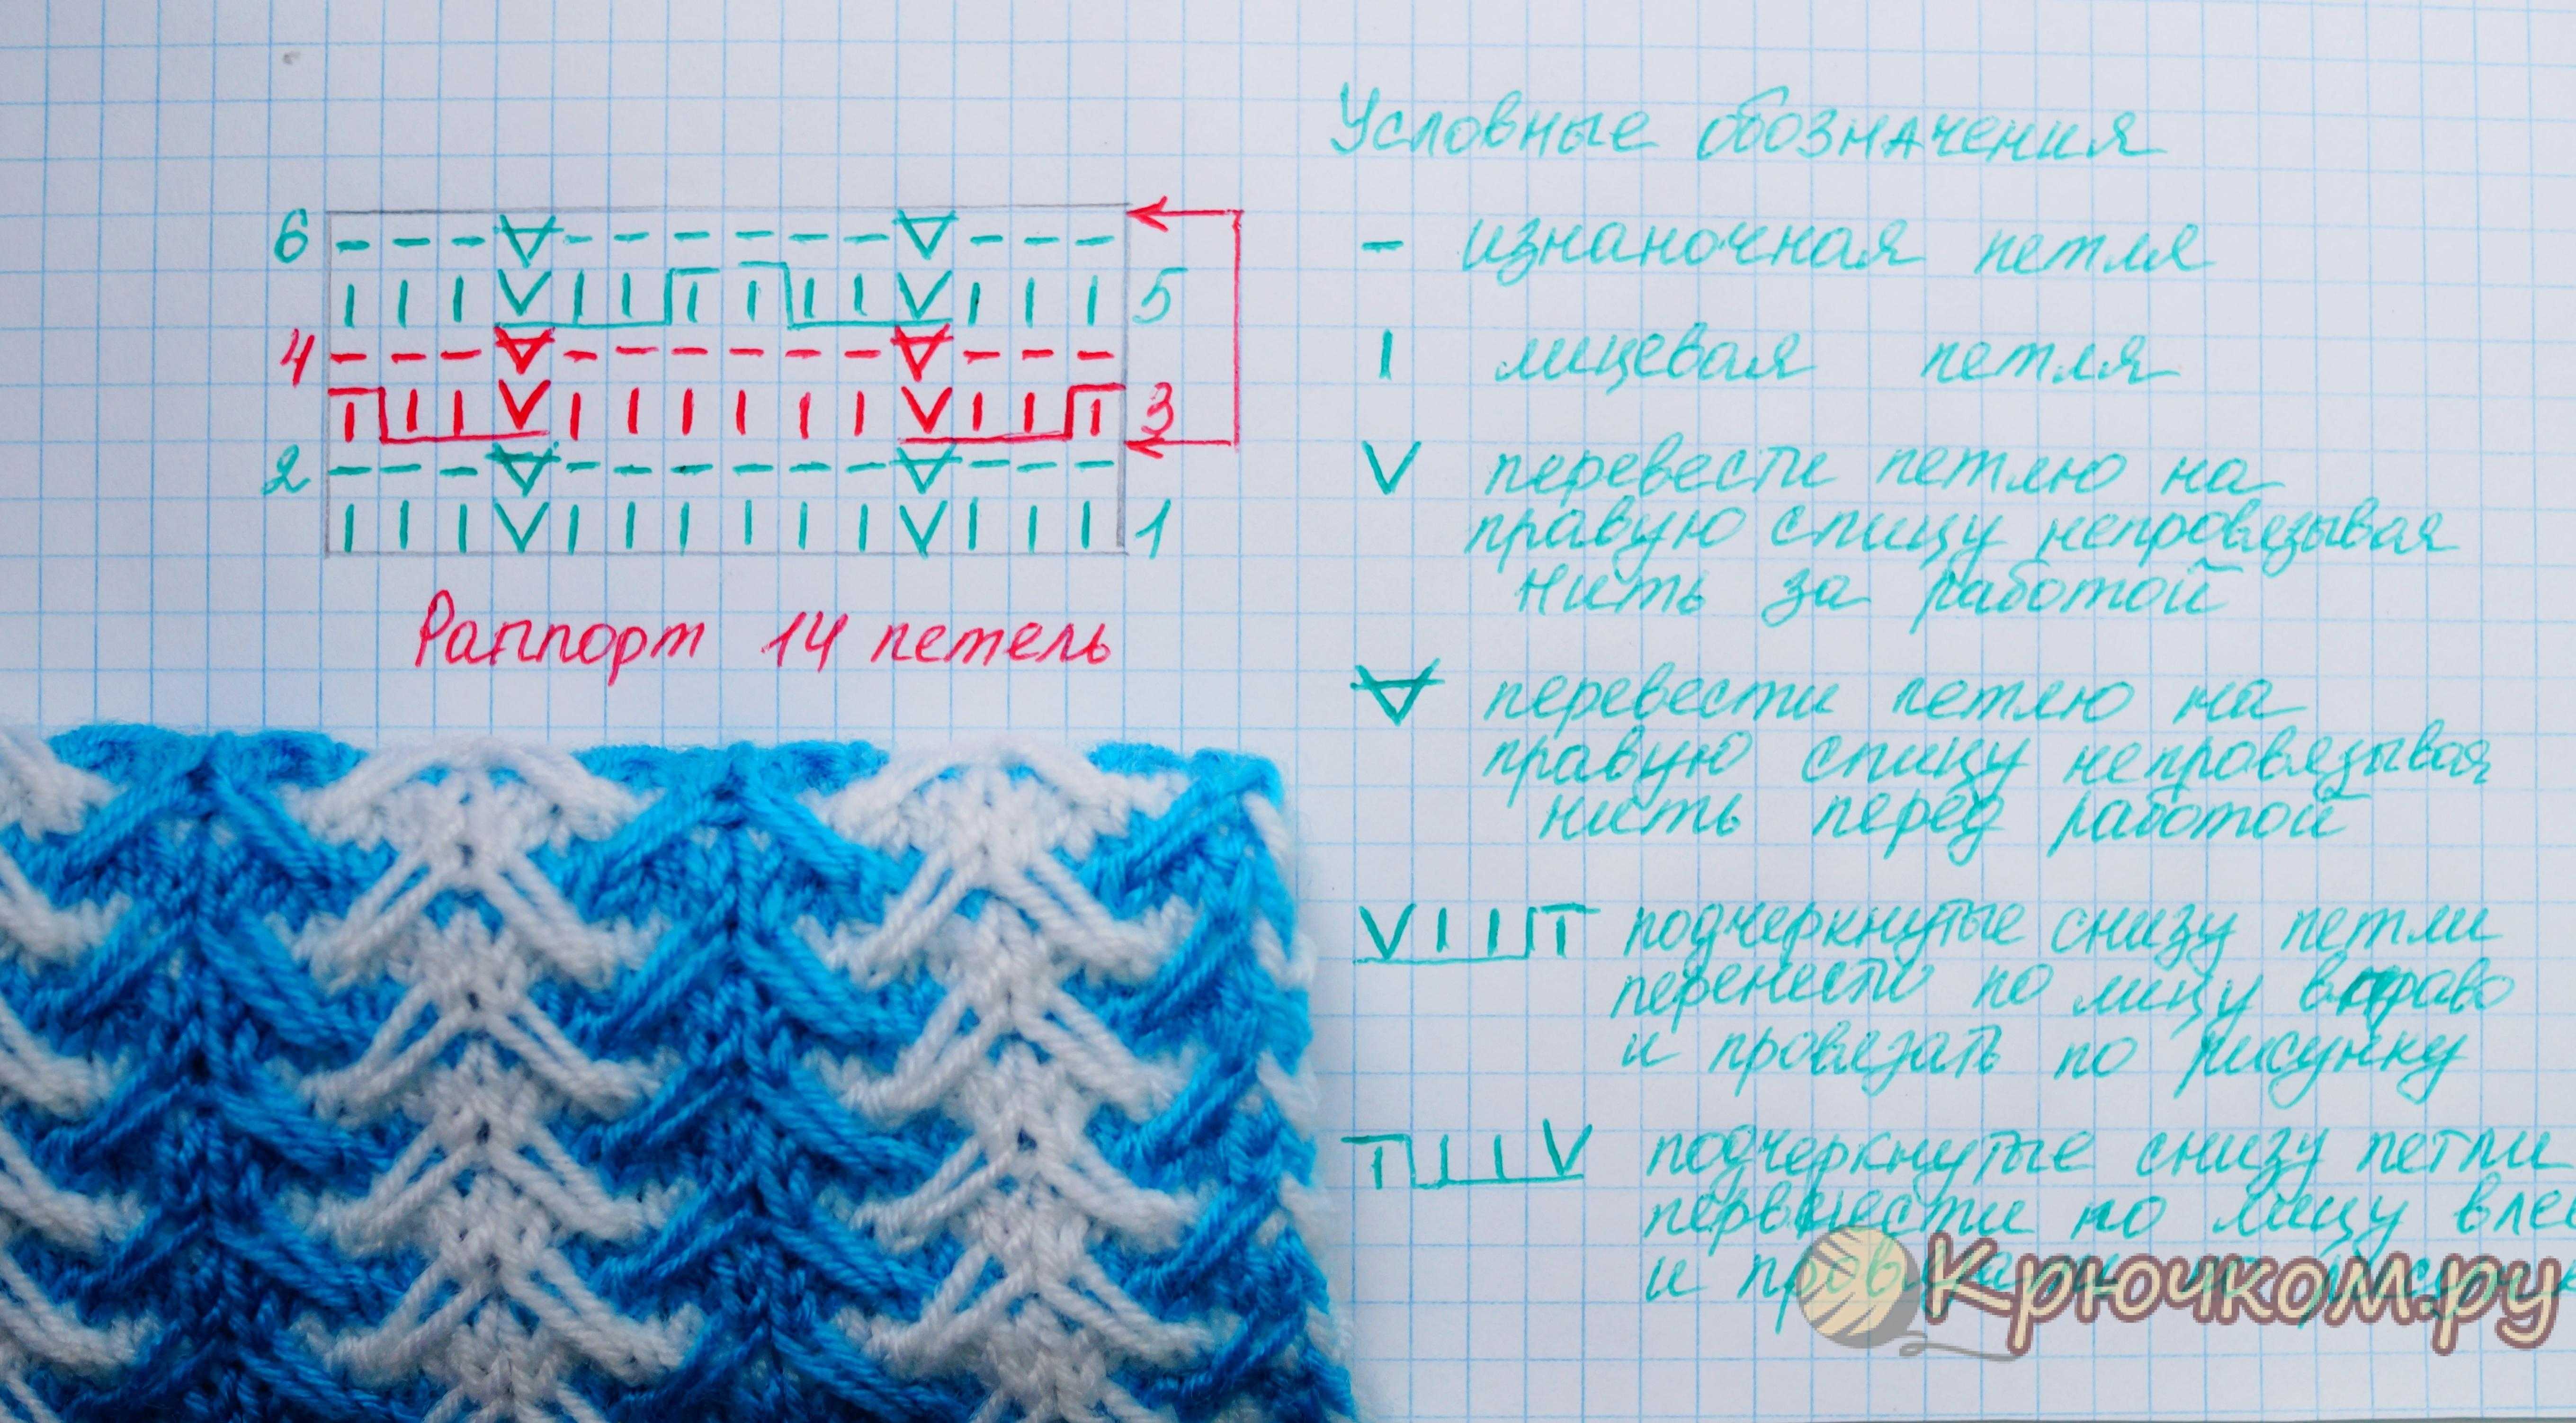 Условные обозначения
6
5
4
3
2
1
Раппорт 14 петель
- изнаночная петля
I лицевая петля
V перевести петлю на
правую спицу непровязывая
нить за работой
перевести петлю на
правую спицу непровязывая
нить перед работой
подчеркнутые снизу петли
перенести по лицу вправо
и провязать по рисунку
подчеркнутые снизу петли
перенести по лицу вле
и
Крючком.ру